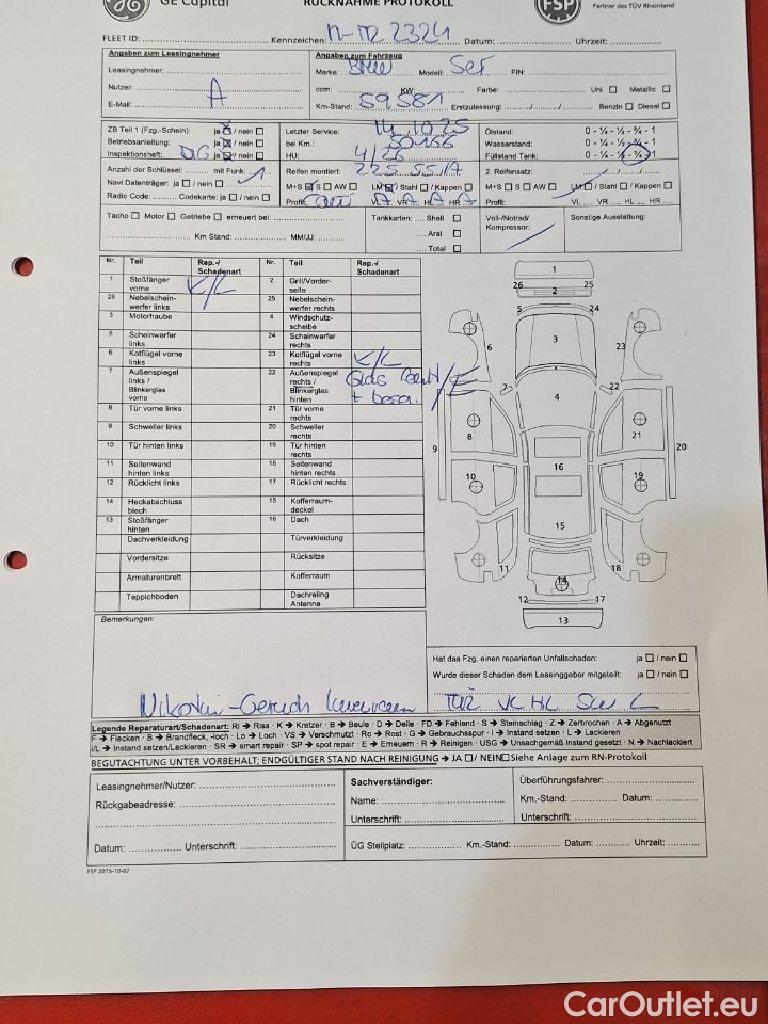 GE Capital
RÜCKNAHME PROTOKOLL
FSP
Partner des TÜV Rheinland
FLEET ID: Kennzeichen: Datum: Uhrzeit:
Angaben zum Leasingnehmer
Leasingnehmer:
Nutzer: A
E-Mail:
Angaben zum Fahrzeug
Marke: BMW Modell: 5er FIN:
ccm: KW: Farbe: Uni Metallic
Km-Stand: 59581 Erstzulassung: Benzin Diesel
ZB Teil 1 (Fzg.-Schein): ja / nein
Betriebsanleitung: ja / nein
Inspektionsheft: DG ja / nein
Letzter Service: 14.10.25
bei Km.: 50166
HU: 4/26
Ölstand: 0 - ¼ - ½ - ¾ - 1
Wasserstand: 0 - ¼ - ½ - ¾ - 1
Füllstand Tank: 0 - ¼ - ½ - ¾ - 1
Anzahl der Schlüssel: mit Funk
Navi Datenträger: ja / nein
Radio Code: Codekarte: ja / nein
Reifen montiert: 225 55 17
M+S S AW LM / Stahl / Kappen
Profil: VL VR HL HR
2. Reifensatz:
M+S S AW LM / Stahl / Kappen
Profil: VL VR HL HR
Tacho Motor Getriebe erneuert bei:
Km Stand: MM/JJ:
Tankkarten: Shell
Aral
Total
Voll-/Notrad/
Kompressor:
Sonstige Ausstattung:
Nr. Teil Rep.-/ Schadenart Nr. Teil Rep.-/ Schadenart
1 Stoßfänger vorne K/L 2 Grill/Vorder- seite
26 Nebelschein- werfer links 25 Nebelschein- werfer rechts
3 Motorhaube 4 Windschutz- scheibe
5 Scheinwerfer links 24 Scheinwerfer rechts
6 Kotflügel vorne links 23 Kotflügel vorne rechts K/L
7 Außenspiegel links / Blinkerglas vorne 22 Außenspiegel rechts / Blinkerglas hinten Glas
8 Tür vorne links 21 Tür vorne rechts
9 Schweller links 20 Schweller rechts
10 Tür hinten links 19 Tür hinten rechts
11 Seitenwand hinten links 18 Seitenwand hinten rechts
12 Rücklicht links 17 Rücklicht rechts
14 Heckabschluss blech 15 Kofferraum- deckel
13 Stoßfänger hinten 16 Dach
Dachverkleidung Türverkleidung
Vordersitze Rücksitze
Armaturenbrett Kofferraum
Teppichboden Dachreling Antenne
1
26 2 25
5 24
6 3 23
7 22
4
8 21
9 20
10 16 19
15
11 14 18
12 17
13
Bemerkungen:
Nikotin-Geruch
Hat das Fzg. einen reparierten Unfallschaden: ja / nein
Wurde dieser Schaden dem Leasinggeber mitgeteilt: ja / nein
Legende Reparaturart/Schadenart: RI → Riss · K → Kratzer · B → Beule · D → Delle · FD → Fehlend · S → Steinschlag · Z → Zerbrochen · A → Abgenutzt
F → Flecken · B → Brandfleck, -loch · Lo → Loch · VS → Verschmutzt · Ro → Rost · G → Gebrauchsspur · I → Instand setzen · L → Lackieren
I/L → Instand setzen/Lackieren · SR → smart repair · SP → spot repair · E → Erneuern · R → Reinigen · USG → Unsachgemäß instand gesetzt · N → Nachlackiert
BEGUTACHTUNG UNTER VORBEHALT; ENDGÜLTIGER STAND NACH REINIGUNG → JA / NEIN Siehe Anlage zum RN-Protokoll
Leasingnehmer/Nutzer:
Rückgabeadresse:
Datum: Unterschrift:
Sachverständiger:
Name:
Unterschrift:
Überführungsfahrer:
Km.-Stand: Datum:
Unterschrift:
ÜG Stellplatz: Km.-Stand: Datum: Uhrzeit:
CarOutlet.eu